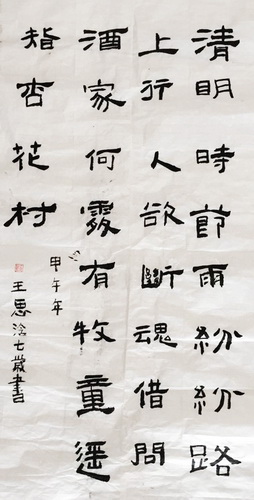 清明時節雨紛紛路
上行人欲斷魂借問
酒家何處有牧童遥
指杏花村
甲午年
王思七歲書